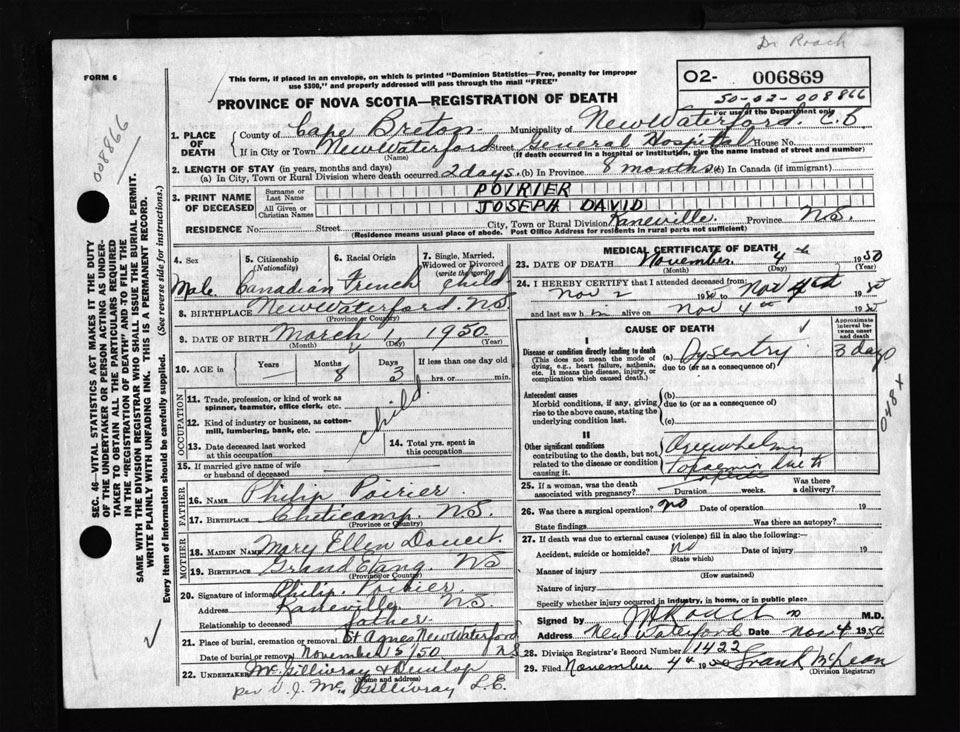 Dr Roach
FORM 6
This form, if placed in an envelope, on which is printed "Dominion Statistics—Free, penalty for improper
use $300," and properly addressed will pass through the mail "FREE"
O2- 006869
50-02-008866
For use of the Department only
008866
PROVINCE OF NOVA SCOTIA—REGISTRATION OF DEATH
1. PLACE OF DEATH
County of Cape Breton Municipality of New Waterford. C.B
If in City or Town New Waterford Street General Hospital House No.
(Name) (If death occurred in a hospital or institution, give the name instead of street and number)
2. LENGTH OF STAY (in years, months and days)
(a) In City, Town or Rural Division where death occurred 2 days (b) In Province 8 months (c) In Canada (if immigrant)
3. PRINT NAME OF DECEASED
Surname or Last Name POIRIER
All Given or Christian Names JOSEPH DAVID
RESIDENCE No. Street City, Town or Rural Division Kaneville. Province N.S.
(Residence means usual place of abode. Post Office Address for residents in rural parts not sufficient)
SEC. 46—VITAL STATISTICS ACT MAKES IT THE DUTY
OF THE UNDERTAKER OR PERSON ACTING AS UNDER-
TAKER TO OBTAIN ALL THE PARTICULARS REQUIRED
IN THE "REGISTRATION OF DEATH" AND TO FILE THE
SAME WITH THE DIVISION REGISTRAR WHO SHALL ISSUE THE BURIAL PERMIT.
WRITE PLAINLY WITH UNFADING INK. THIS IS A PERMANENT RECORD.
Every item of information should be carefully supplied. (See reverse side for instructions.)
4. Sex
Male
5. Citizenship (Nationality)
Canadian
6. Racial Origin
French
7. Single, Married, Widowed or Divorced (write the word)
Child
8. BIRTHPLACE New Waterford. N.S
(Province or Country)
9. DATE OF BIRTH March 1950
(Month) (Day) (Year)
10. AGE Years Months 8 Days 3 If less than one day old
hrs. or min.
OCCUPATION
11. Trade, profession, or kind of work as
spinner, teamster, office clerk, etc.
12. Kind of industry or business, as cotton-
mill, lumbering, bank, etc.
child
13. Date deceased last worked
at this occupation
14. Total yrs. spent in
this occupation
15. If married give name of wife
or husband of deceased
FATHER
16. NAME Philip Poirier
17. BIRTHPLACE Cheticamp. N.S.
(Province or Country)
MOTHER
18. MAIDEN NAME Mary Ellen Doucet.
19. BIRTHPLACE Grand Etang. NS
(Province or Country)
20. Signature of informant Philip Poirier
Address Kaneville N.S.
Relationship to deceased father
21. Place of burial, cremation or removal St Agnes New Waterford
Date of burial or removal November 5/50 N.S
22. UNDERTAKER McGillivray & Dunlop
(Name and address)
per V. J. McGillivray L.E.
MEDICAL CERTIFICATE OF DEATH
23. DATE OF DEATH November 4th 1950
(Month) (Day) (Year)
24. I HEREBY CERTIFY that I attended deceased from
Nov 2 1950 to Nov 4th 1950
and last saw him alive on Nov 4th 1950
CAUSE OF DEATH
Approximate interval between onset and death
I
Disease or condition directly leading to death
(This does not mean the mode of
dying, e.g., heart failure, asthenia,
etc. It means the disease, injury, or
complication which caused death.)
(a) Dysentry 3 days
due to (or as a consequence of)
Antecedent causes
Morbid conditions, if any, giving
rise to the above cause, stating the
underlying condition last.
(b)
due to (or as a consequence of)
(c)
048 x
II
Other significant conditions
contributing to the death, but not
related to the disease or condition
causing it.
Overwhelming
Toxaemia due to
25. If a woman, was the death
associated with pregnancy? Duration weeks. Was there
a delivery?
26. Was there a surgical operation? no Date of operation 19
State findings Was there an autopsy?
27. If death was due to external causes (violence) fill in also the following:
Accident, suicide or homicide? No Date of injury 19
(State which)
Manner of injury
(How sustained)
Nature of injury
Specify whether injury occurred in industry, in home, or in public place
Signed by Roach M.D.
Address New Waterford Date Nov 4 1950
28. Division Registrar's Record Number 1422
29. Filed November 4th 1950 Frank McLean
(Division Registrar)